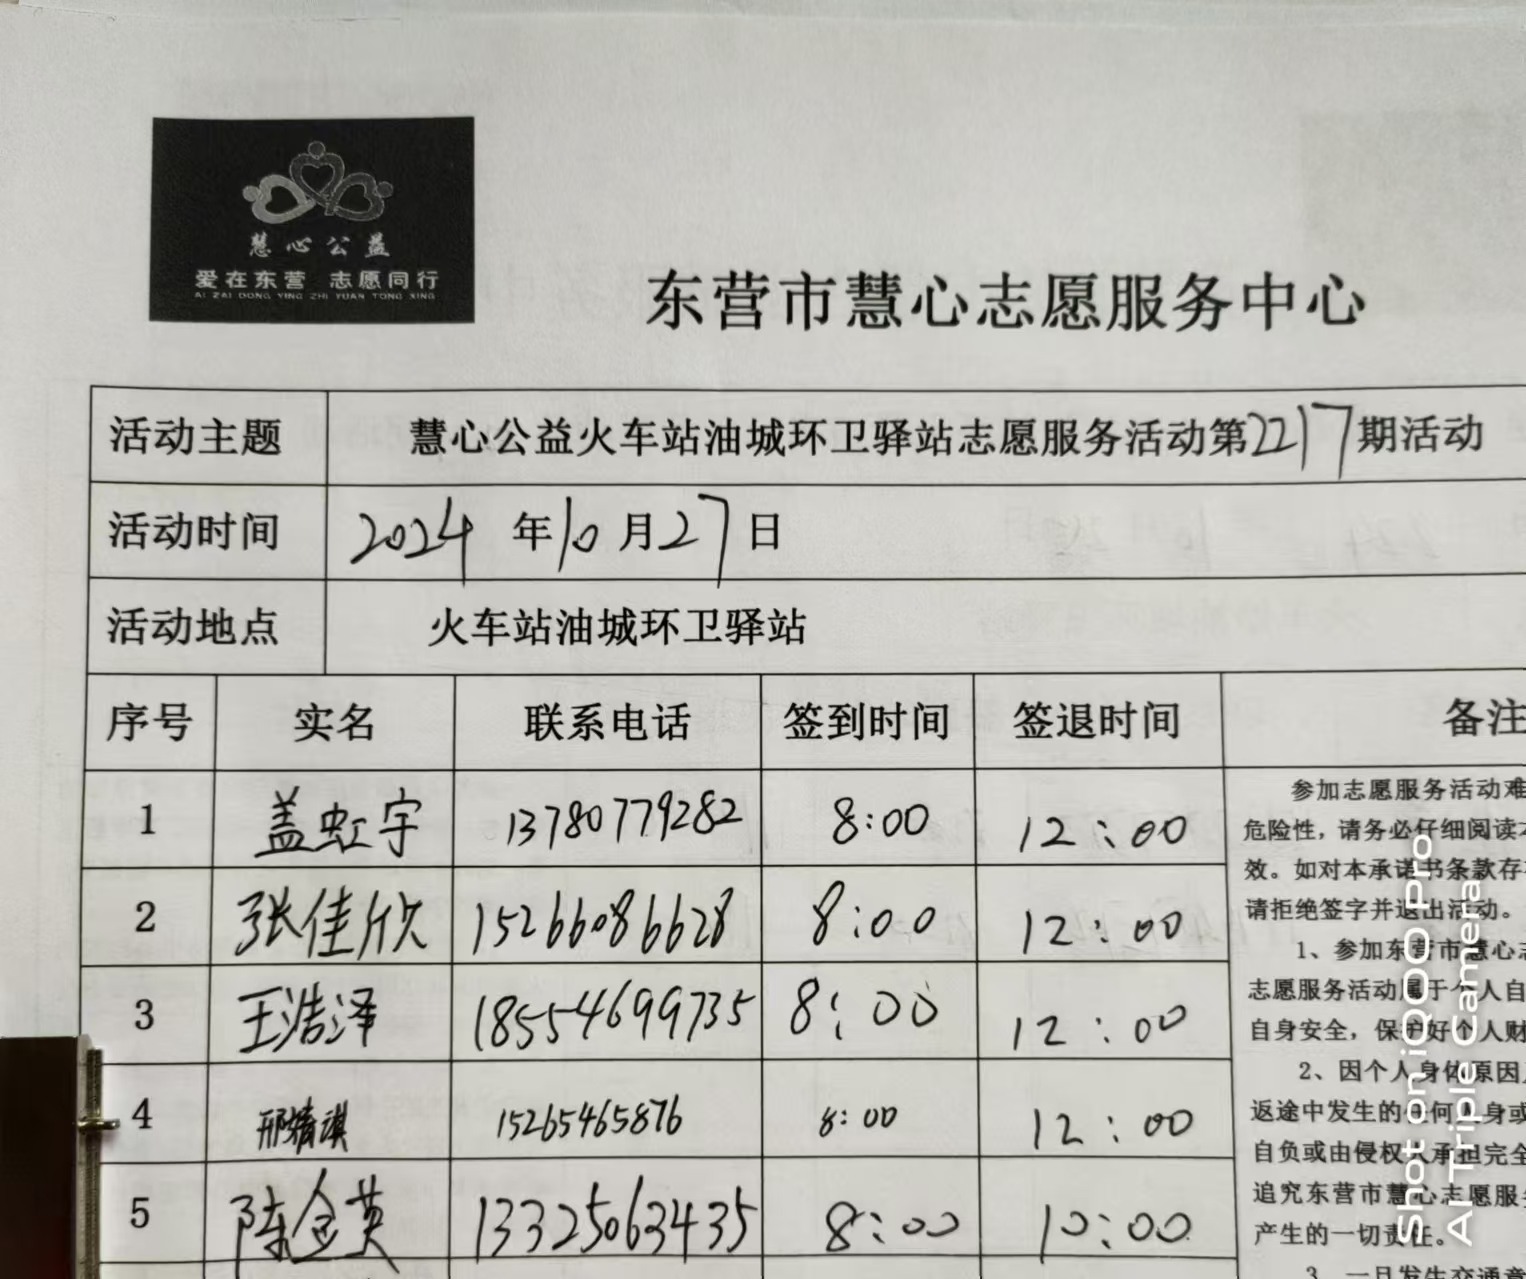 慧心公益
爱在东营 志愿同行
AI ZAI DONG YING ZHI YUAN TONG XING
东营市慧心志愿服务中心
活动主题 慧心公益火车站油城环卫驿站志愿服务活动第2217期活动
活动时间 2024年10月27日
活动地点 火车站油城环卫驿站
序号 实名 联系电话 签到时间 签退时间 备注
1 盖虹宇 13780779282 8:00 12:00
2 张佳欣 15266086628 8:00 12:00
3 王浩泽 18554699735 8:00 12:00
4 邢婧淇 15265465876 8:00 12:00
5 陈金英 13325063435 8:00 10:00
参加志愿服务活动难
危险性，请务必仔细阅读本
效。如对本承诺书条款存
请拒绝签字并退出活动。
1、参加东营市慧心志
志愿服务活动属于个人自
自身安全，保护好个人财
2、因个人身体原因
返途中发生的任何人身或
自负或由侵权人承担完全
追究东营市慧心志愿服务
产生的一切责任。
3、一旦发生交通意
Shot on iQOO Pro
AI Triple Camera